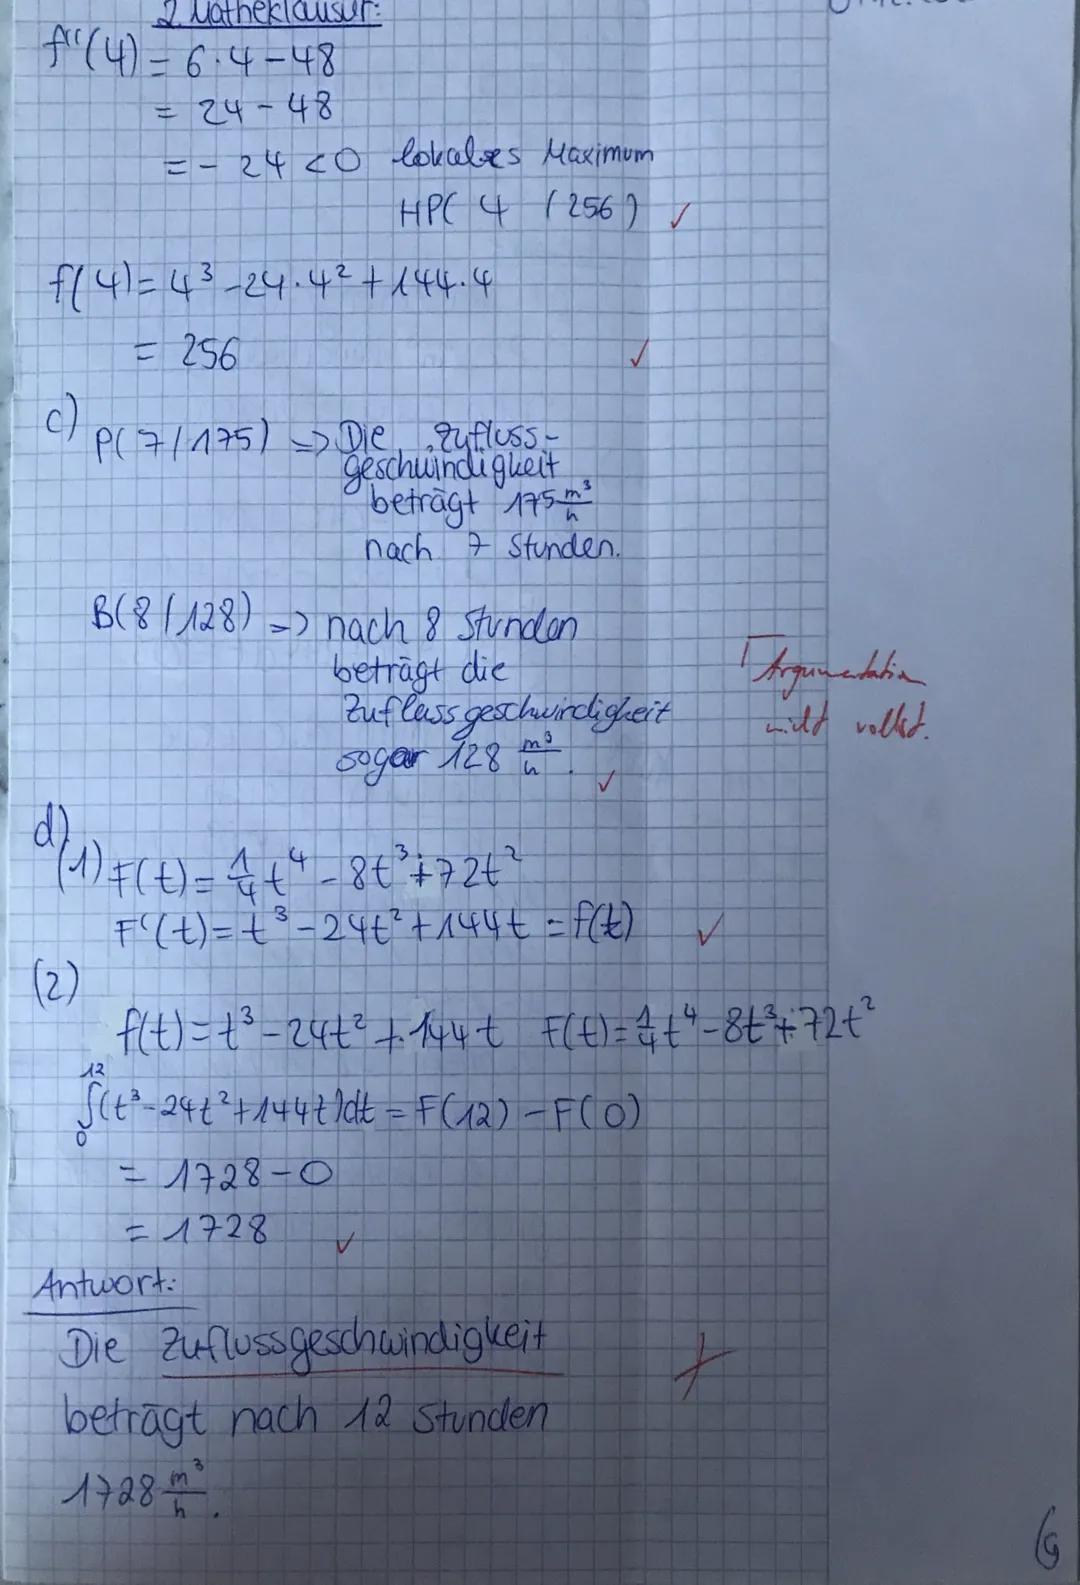 2. Matheklausur:
f''(4) = 6·4-48
= 24-48
= -24 <0 lokales Maximum
HP( 4 / 256) ✓
f(4) = 4³-24·4²+144·4
= 256 ✓
c) P(7/175) => Die Zufluss-
geschwindigkeit
beträgt 175 m³/h
nach 7 Stunden.
B(8/128) => nach 8 Stunden
beträgt die
Zuflussgeschwindigkeit
sogar 128 m³/h. ✓
Γ Argumentation
nicht vollst.
d)
(1) F(t) = 1/4 t⁴ - 8t³+72t²
F'(t) = t³-24t²+144t = f(t) ✓
(2)
f(t) = t³-24t² + 144t F(t) = 1/4 t⁴-8t³+72t²
∫₀¹²(t³-24t²+144t)dt = F(12) - F(0)
= 1728-0
= 1728 ✓
Antwort:
Die Zuflussgeschwindigkeit
beträgt nach 12 Stunden
1728 m³/h.